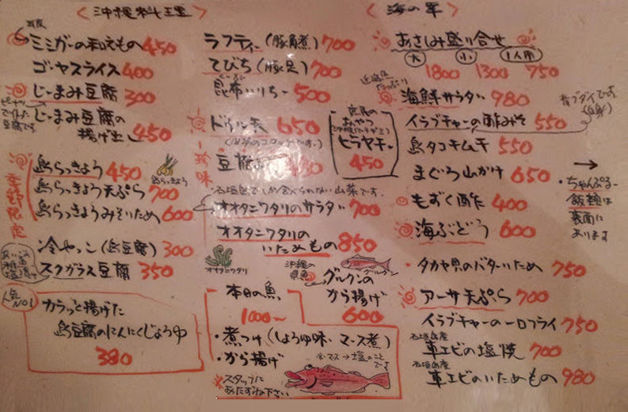 ＜沖縄料理＞
耳皮
ミミガーの和えもの 450
ゴーヤスライス 400
じーまみ豆腐 300
ピーナツで作った豆腐です
じーまみ豆腐の
揚げ出し 450
島らっきょう 450
島らっきょう
島らっきょう天ぷら 700
島らっきょうみそいため 600
冷やっこ(島豆腐) 300
スクガラス豆腐 350
人気No1
カラっと揚げた
島豆腐のにんにくじょうゆ
380
ラフティー(豚角煮) 700
てびち(豚足) 700
昆布いりちー 500
ドゥル天 650
珍味
石垣島でしか食べられない山菜です。
オオタニワタリのサラダ 700
オオタニワタリの
いためもの 850
オオタニワタリ
沖縄の県魚
グルクンの
から揚げ
600
グルクン
本日の魚
1000〜
・煮つけ(しょうゆ味・マース煮)
・から揚げ
※マース→塩のことです
※スタッフに
おたずね下さい
ヒラヤチー
450
＜海の幸＞
おさしみ盛り合せ
大 小 1人前
1800 1300 750
海鮮サラダ 980
イラブチャーの酢みそ 550
青ブダイです
(白身)
島タコキムチ 550
まぐろ山かけ 650
もずく酢 400
海ぶどう 600
タカセ貝のバターいため 750
アーサ天ぷら 700
イラブチャーの一口フライ 750
石垣島産
車エビの塩焼 700
石垣島産
車エビのいためもの 980
→
・ちゃんぷるー
飯類は
裏面に
あります